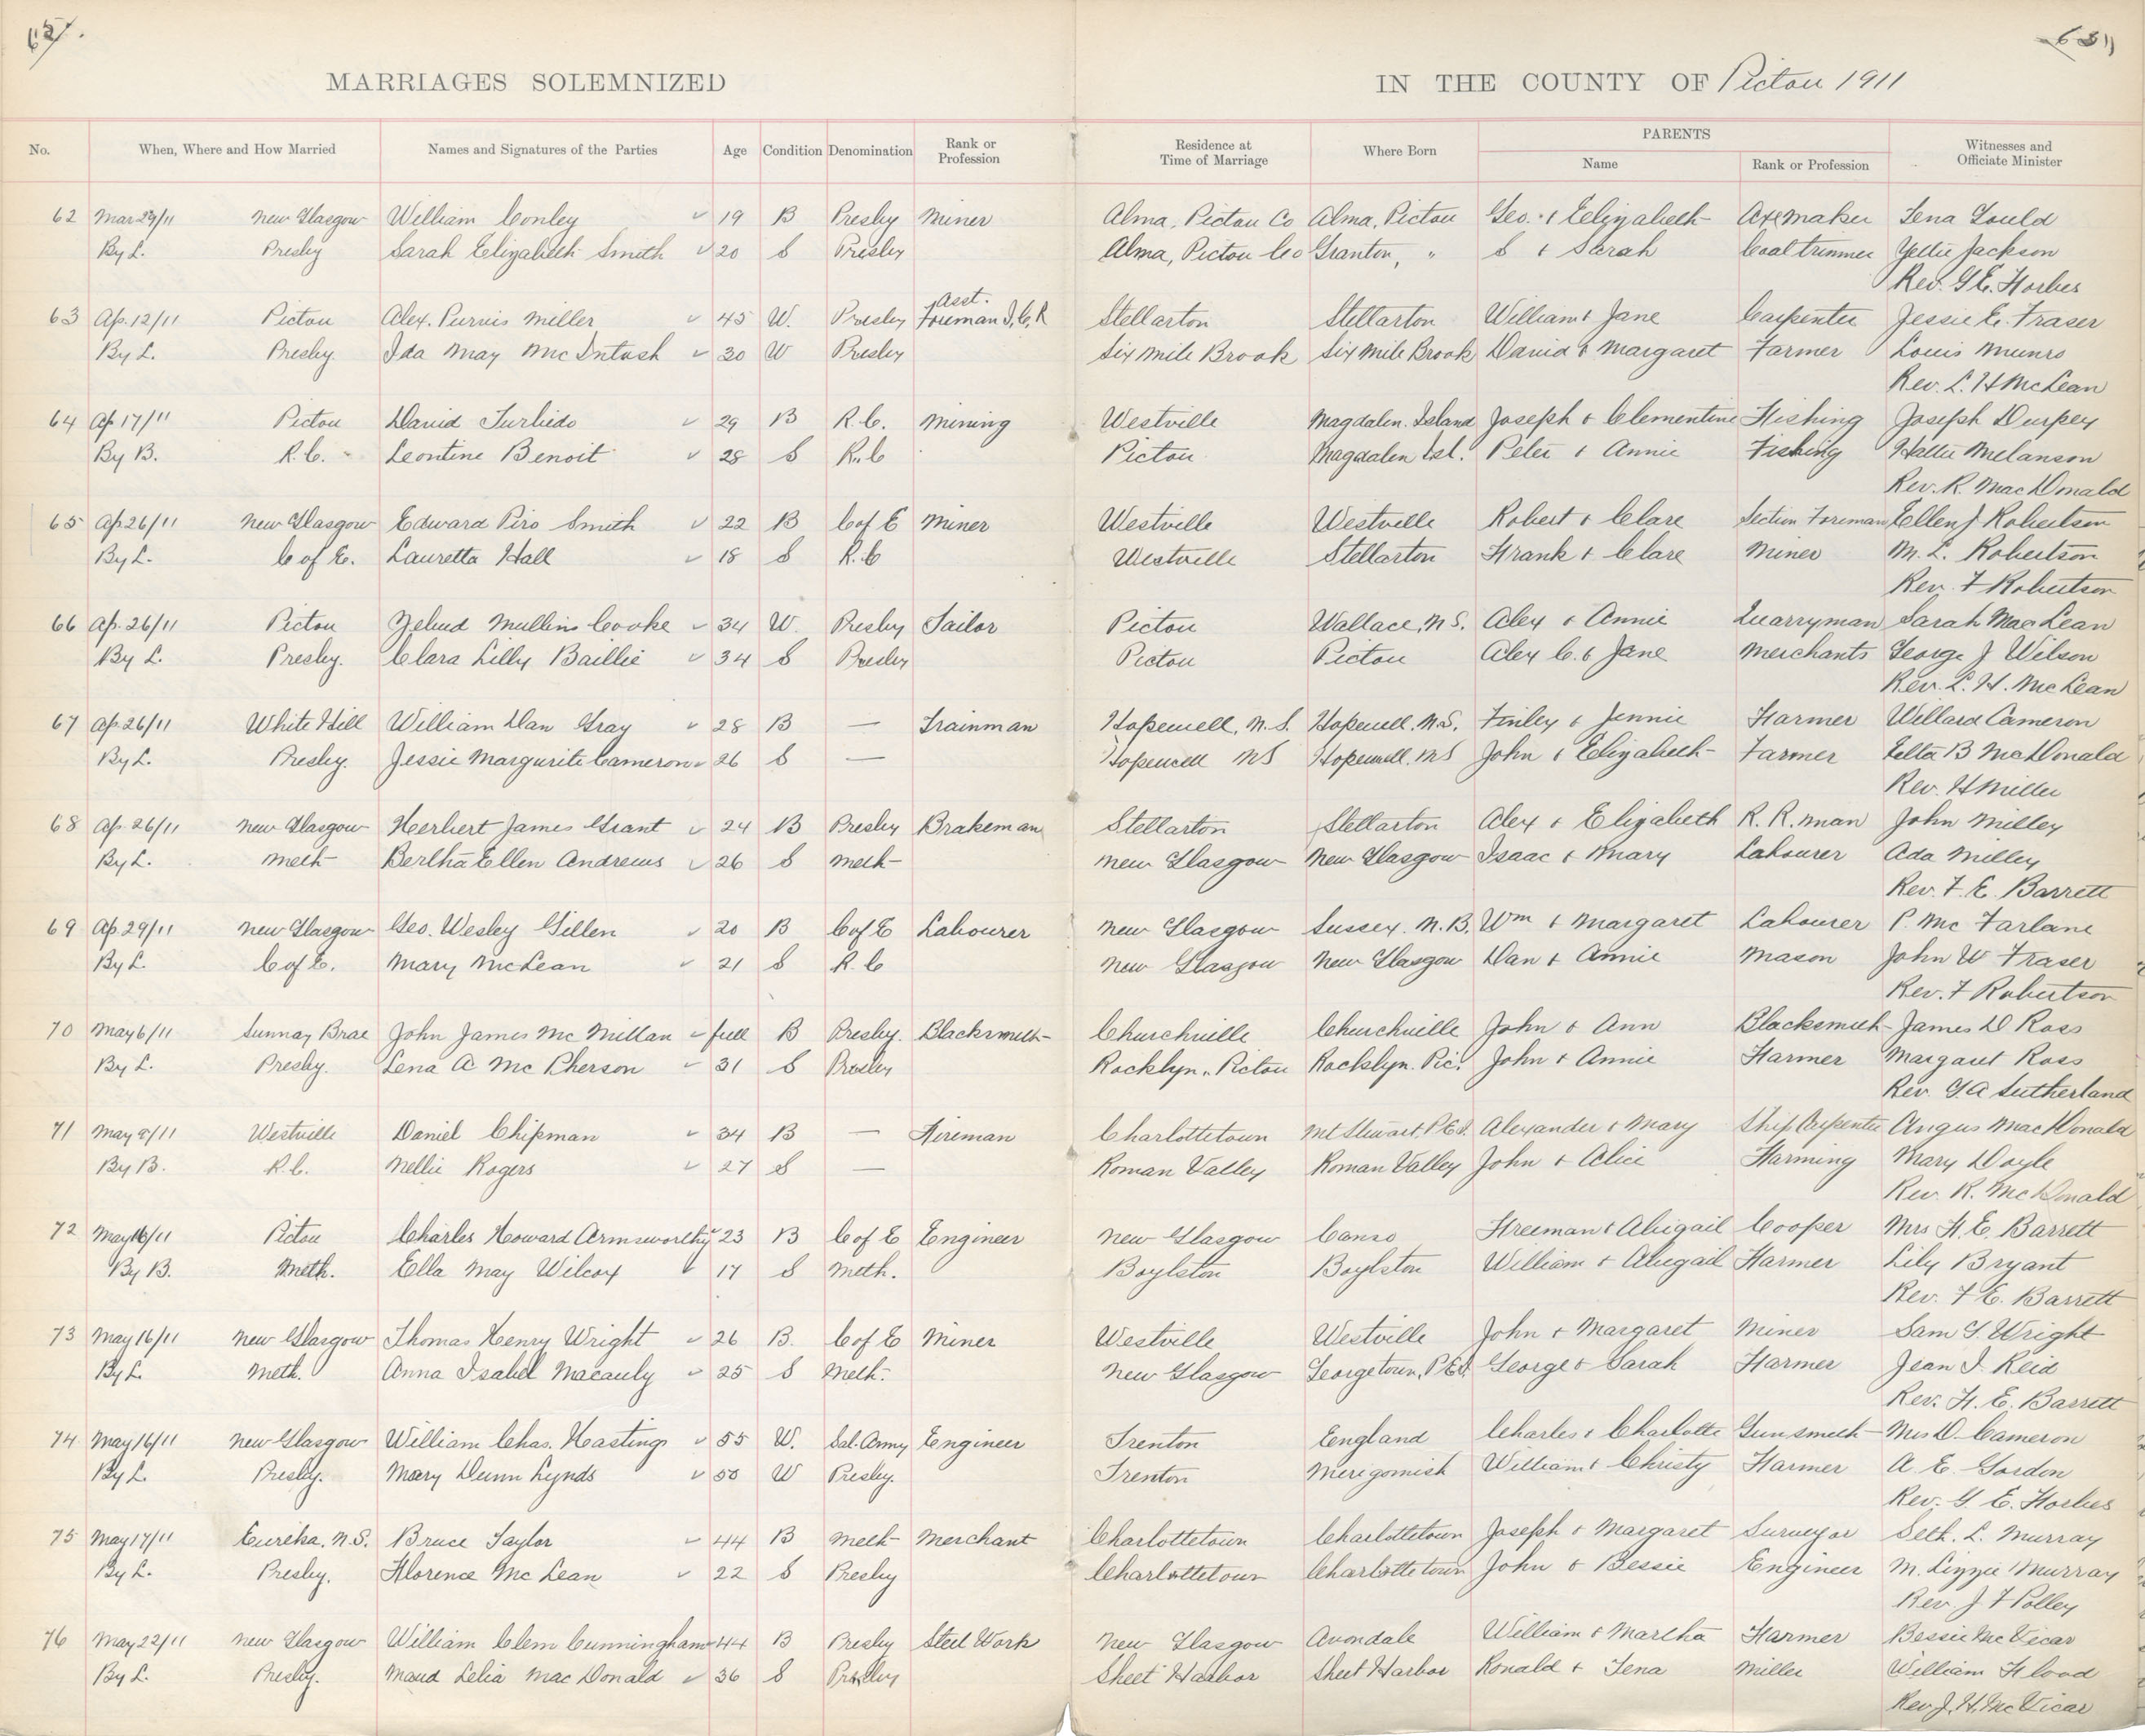 MARRIAGES SOLEMNIZED IN THE COUNTY OF Pictou 1911
No. When, Where and How Married Names and Signatures of the Parties Age Condition Denomination Rank or Profession Residence at Time of Marriage Where Born PARENTS Name Rank or Profession Witnesses and Officiate Minister
62 Mar 29/11 New Glasgow William Conley 19 B Presby Miner Alma, Pictou Co Alma, Pictou Geo. & Elizabeth Axe maker Lena Gould
By L. Presby Sarah Elizabeth Smith 20 S Presby Alma, Pictou Co Granton, " S & Sarah Coal trimmer Jackson
Rev. G E. Forbes
63 Ap. 12/11 Pictou Alex. Purvis Miller 45 W. Presby Asst. Foreman I.C.R Stellarton Stellarton William & Jane Carpenter Jessie E. Fraser
By L. Presby. Ida May McIntosh 30 W Presby Six Mile Brook Six Mile Brook David & Margaret Farmer Louis Munro
Rev. L. H McLean
64 Ap 17/11 Pictou David 29 B R.C. Mining Westville Magdalen. Island Joseph & Clementine Fishing Joseph
By B. R.C. Leontine Benoit 28 S R.C Pictou Magdalen Isl. Peter & Annie Fishing Hattie Melanson
Rev. R. MacDonald
65 Ap 26/11 New Glasgow Edward Piro Smith 22 B C of E Miner Westville Westville Robert & Clare Section Foreman Ellen J Robertson
By L. C of E. Lauretta Hall 18 S R.C Westville Stellarton Frank & Clare Miner M. L. Robertson
Rev. F Robertson
66 Ap. 26/11 Pictou Mullins Cooke 34 W. Presby Tailor Pictou Wallace, N.S. Alex & Annie Quarryman Sarah MacLean
By L. Presby. Clara Lilly Baillie 34 S Presby Pictou Pictou Alex C. & Jane Merchants George J Wilson
Rev. L. H. McLean
67 Ap. 26/11 White Hill William Dan Gray 28 B — Trainman Hopewell, N.S. Hopewell. N.S. Finley & Jennie Farmer Willard Cameron
By L. Presby. Jessie Margurite Cameron 26 S — Hopewell NS Hopewell. NS John & Elizabeth Farmer Etta B McDonald
Rev. H Miller
68 Ap. 26/11 New Glasgow Herbert James Grant 24 B Presby Brakeman Stellarton Stellarton Alex & Elizabeth R. R. man John Milley
By L. Meth Bertha Ellen Andrews 26 S Meth New Glasgow New Glasgow Isaac & Mary Labourer Ada Milley
Rev. F. E. Barrett
69 Ap. 29/11 New Glasgow Geo. Wesley Gillen 20 B C of E Labourer New Glasgow Sussex. N.B. Wm & Margaret Labourer P. McFarlane
By L. C of E. Mary McLean 21 S R.C New Glasgow New Glasgow Dan & Annie Mason John W Fraser
Rev. F Robertson
70 May 6/11 Sunnay Brae John James McMillan full B Presby. Blacksmith Churchville Churchville John & Ann Blacksmith James D Ross
By L. Presby. Lena A McPherson 31 S Presby Rocklyn, Pictou Rocklyn. Pic. John & Annie Farmer Margaret Ross
Rev. G. A Sutherland
71 May 8/11 Westville Daniel Chipman 34 B — Fireman Charlottetown Mt Stewart, P.E.I. Alexander & Mary Ship Carpenter Angus MacDonald
By B. R.C. Nellie Rogers 27 S — Roman Valley Roman Valley John & Alice Farming Mary Doyle
Rev. R. McDonald
72 May 16/11 Pictou Charles Howard Armsworthy 23 B C of E Engineer New Glasgow Canso Freeman & Abigail Cooper Mrs F. E. Barrett
By B. Meth. Ella May Wilcox 17 S Meth. Boylston Boylston William & Abigail Farmer Lily Bryant
Rev. F E. Barrett
73 May 16/11 New Glasgow Thomas Henry Wright 26 B. C of E Miner Westville Westville John & Margaret Miner Sam G. Wright
By L Meth. Anna Isabel Macauly 25 S Meth. New Glasgow Georgetown, P.E.I. George & Sarah Farmer Jean I. Reid
Rev. F. E. Barrett
74 May 16/11 New Glasgow William Chas. Hastings 55 W. Sal. Army Engineer Trenton England Charles & Charlotte Gunsmith Mrs D. Cameron
By L. Presby. Mary Dunn Lynds 50 W Presby. Trenton Merigomish William & Christy Farmer A. E. Gordon
Rev. G. E. Forbes
75 May 17/11 Eureka, N.S. Bruce Taylor 44 B Meth Merchant Charlottetown Charlottetown Joseph & Margaret Surveyor Seth. L. Murray
By L. Presby. Florence McLean 22 S Presby Charlottetown Charlottetown John & Bessie Engineer M. Lizzie Murray
Rev. J F Polley
76 May 22/11 New Glasgow William Clem Cunningham 44 B Presby Steel Work New Glasgow Avondale William & Martha Farmer Bessie McVicar
By L. Presby. Maud Lelia MacDonald 36 S Presby Sheet Harbor Sheet Harbor Ronald & Tena Miller William Flood
Rev. J. H. McVicar